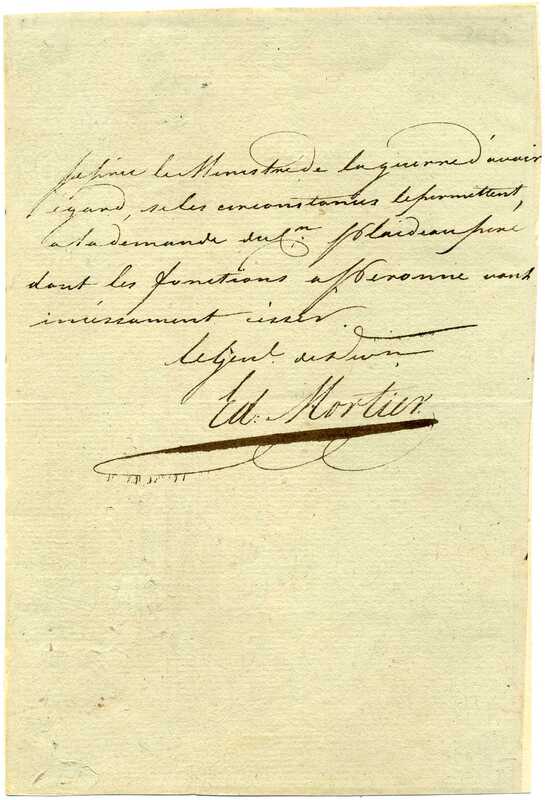 je prie le Ministre de la guerre d'avoir
égard, si les circonstances le permettent,
a la demande du Cen. Plaideau pere
dont les fonctions a Peronne vont
incessament cesser.
le Génl. de Divon
Ed. Mortier